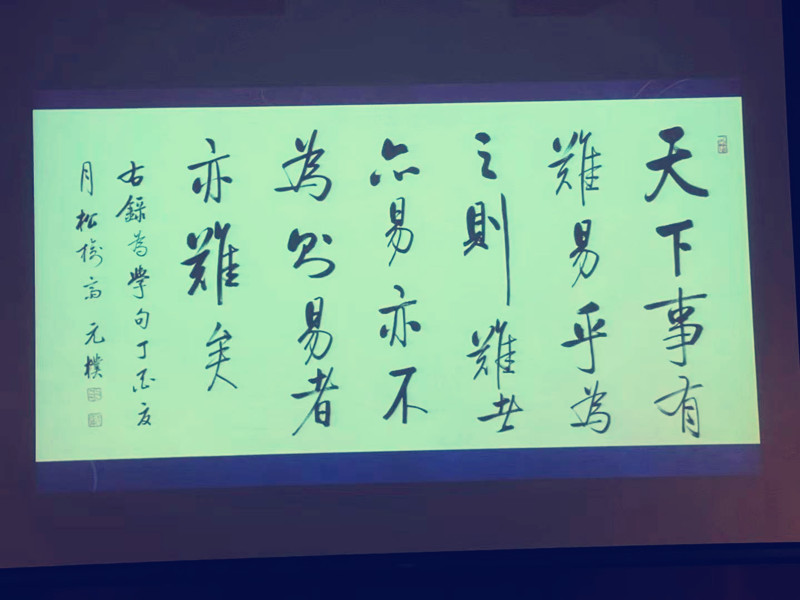 天下事有
難易乎為
之則難者
亦易亦不
為則易者
亦難矣
右録為學句丁酉夏
月松高元樸